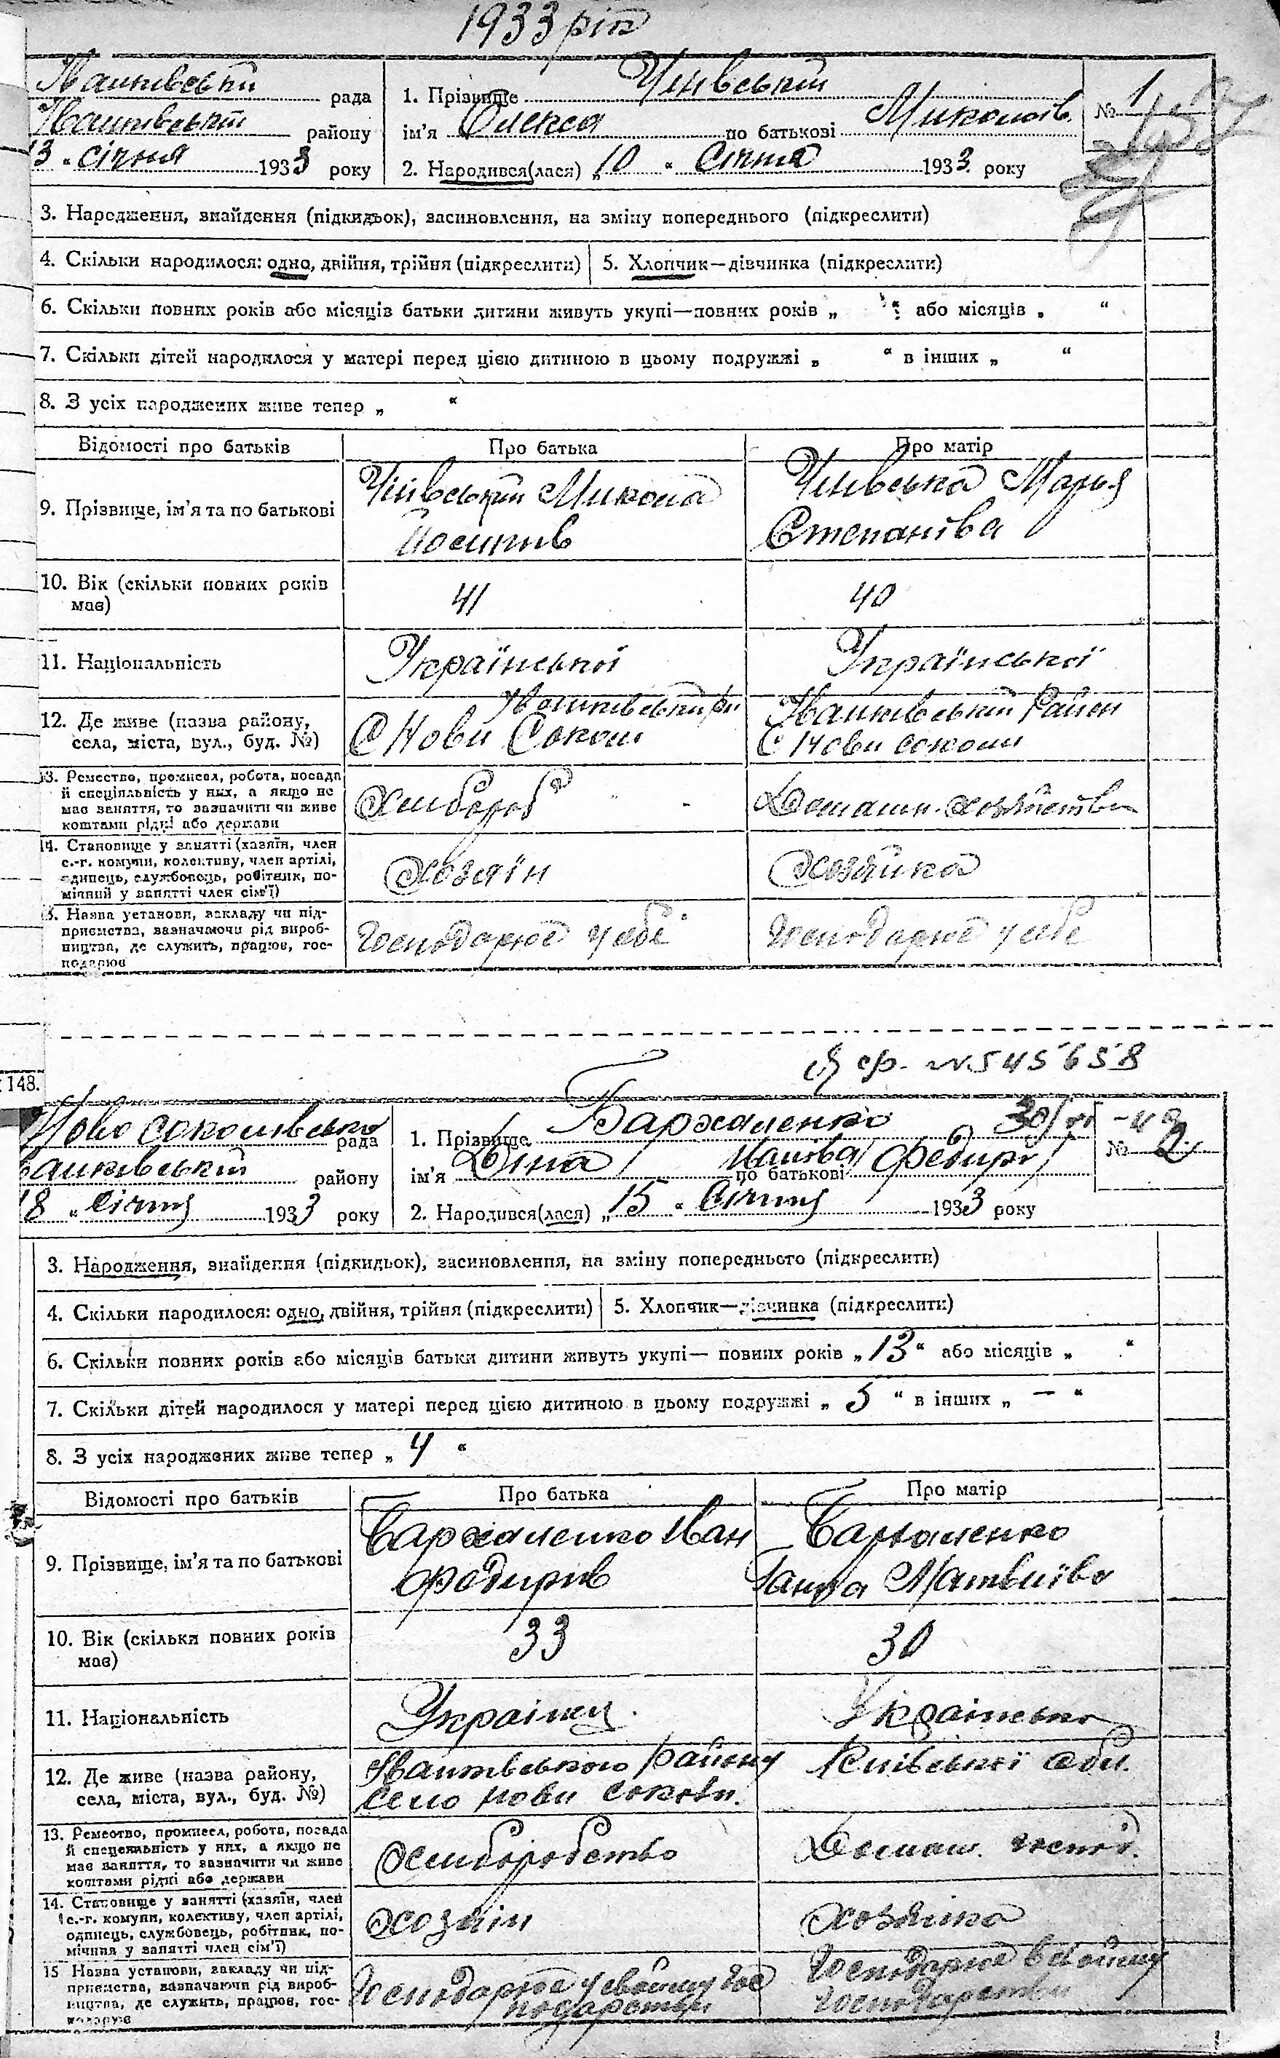 1933 рік
Іванківський рада
Іванківський району
13 „ січня 1933 року
1. Прізвище
ім'я Олекса по батькові Миколаїв
2. Народився(лася) „ 10 “ Січня 1933 року
№ 1
3. Народження, знайдення (підкидьок), засиновлення, на зміну попереднього (підкреслити)
4. Скільки народилося: одно, двійня, трійня (підкреслити) 5. Хлопчик—дівчинка (підкреслити)
6. Скільки повних років або місяців батьки дитини живуть укупі—повних років „ “ або місяців „ “
7. Скільки дітей народилося у матері перед цією дитиною в цьому подружжі „ “ в інших „ “
8. З усіх народжених живе тепер „ “
Відомості про батьків Про батька Про матір
9. Прізвище, ім'я та по батькові
Микола Йосипів
Марья Степанівна
10. Вік (скільки повних років має) 41 40
11. Національність Української Української
12. Де живе (назва району, села, міста, вул., буд. №)
Іванківський р-н
С Нови Соколи
Іванківський Район
С Нови Соколи
13. Ремество, промисел, робота, посада й спеціяльність у них, а якщо не має заняття, то зазначити чи живе коштами рідні або держави
Хлибороб
Домашн. хозяйство
14. Становище у занятті (хазяїн, член с.-г. комуни, колективу, член артілі, одинець, службовець, робітник, помічний у занятті член сім'ї)
Хозяїн Хозяйка
15. Назва установи, закладу чи підприємства, зазначаючи рід виробництва, де служить, працює, господарює
Господарює у себе Господарює у себе
148.
№ 545658
Ново соколівська рада
Іванківський району
18 „ Січня 1933 року
1. Прізвище Бархаленко
ім'я Діна по батькові Іванова Федир
2. Народився(лася) „ 15 “ Січня 1933 року
№ 2
3. Народження, знайдення (підкидьок), засиновлення, на зміну попереднього (підкреслити)
4. Скільки народилося: одно, двійня, трійня (підкреслити) 5. Хлопчик—дівчинка (підкреслити)
6. Скільки повних років або місяців батьки дитини живуть укупі— повних років „ 13 “ або місяців „ “
7. Скільки дітей народилося у матері перед цією дитиною в цьому подружжі „ 5 “ в інших „ — “
8. З усіх народжених живе тепер „ 4 “
Відомості про батьків Про батька Про матір
9. Прізвище, ім'я та по батькові
Бархаленко Іван Федирів
Бархаленко Ганна Матвиївн
10. Вік (скільки повних років має) 33 30
11. Національність Українец Українська
12. Де живе (назва району, села, міста, вул., буд. №)
Іванківського району Київської обл.
село нови соколи.
13. Ремество, промисел, робота, посада й спеціяльність у них, а якщо не має заняття, то зазначити чи живе коштами рідні або держави
Хлиборобство
Домаш. господ.
14. Становище у занятті (хазяїн, член с.-г. комуни, колективу, член артілі, одинець, службовець, робітник, помічник у занятті член сім'ї)
хозяїн хозяйка
15 Назва установи, закладу чи підприємства, зазначаючи рід виробництва, де служить, працює, господарює
Господарює у свойому господарстви
Господарює в свойому господарстви